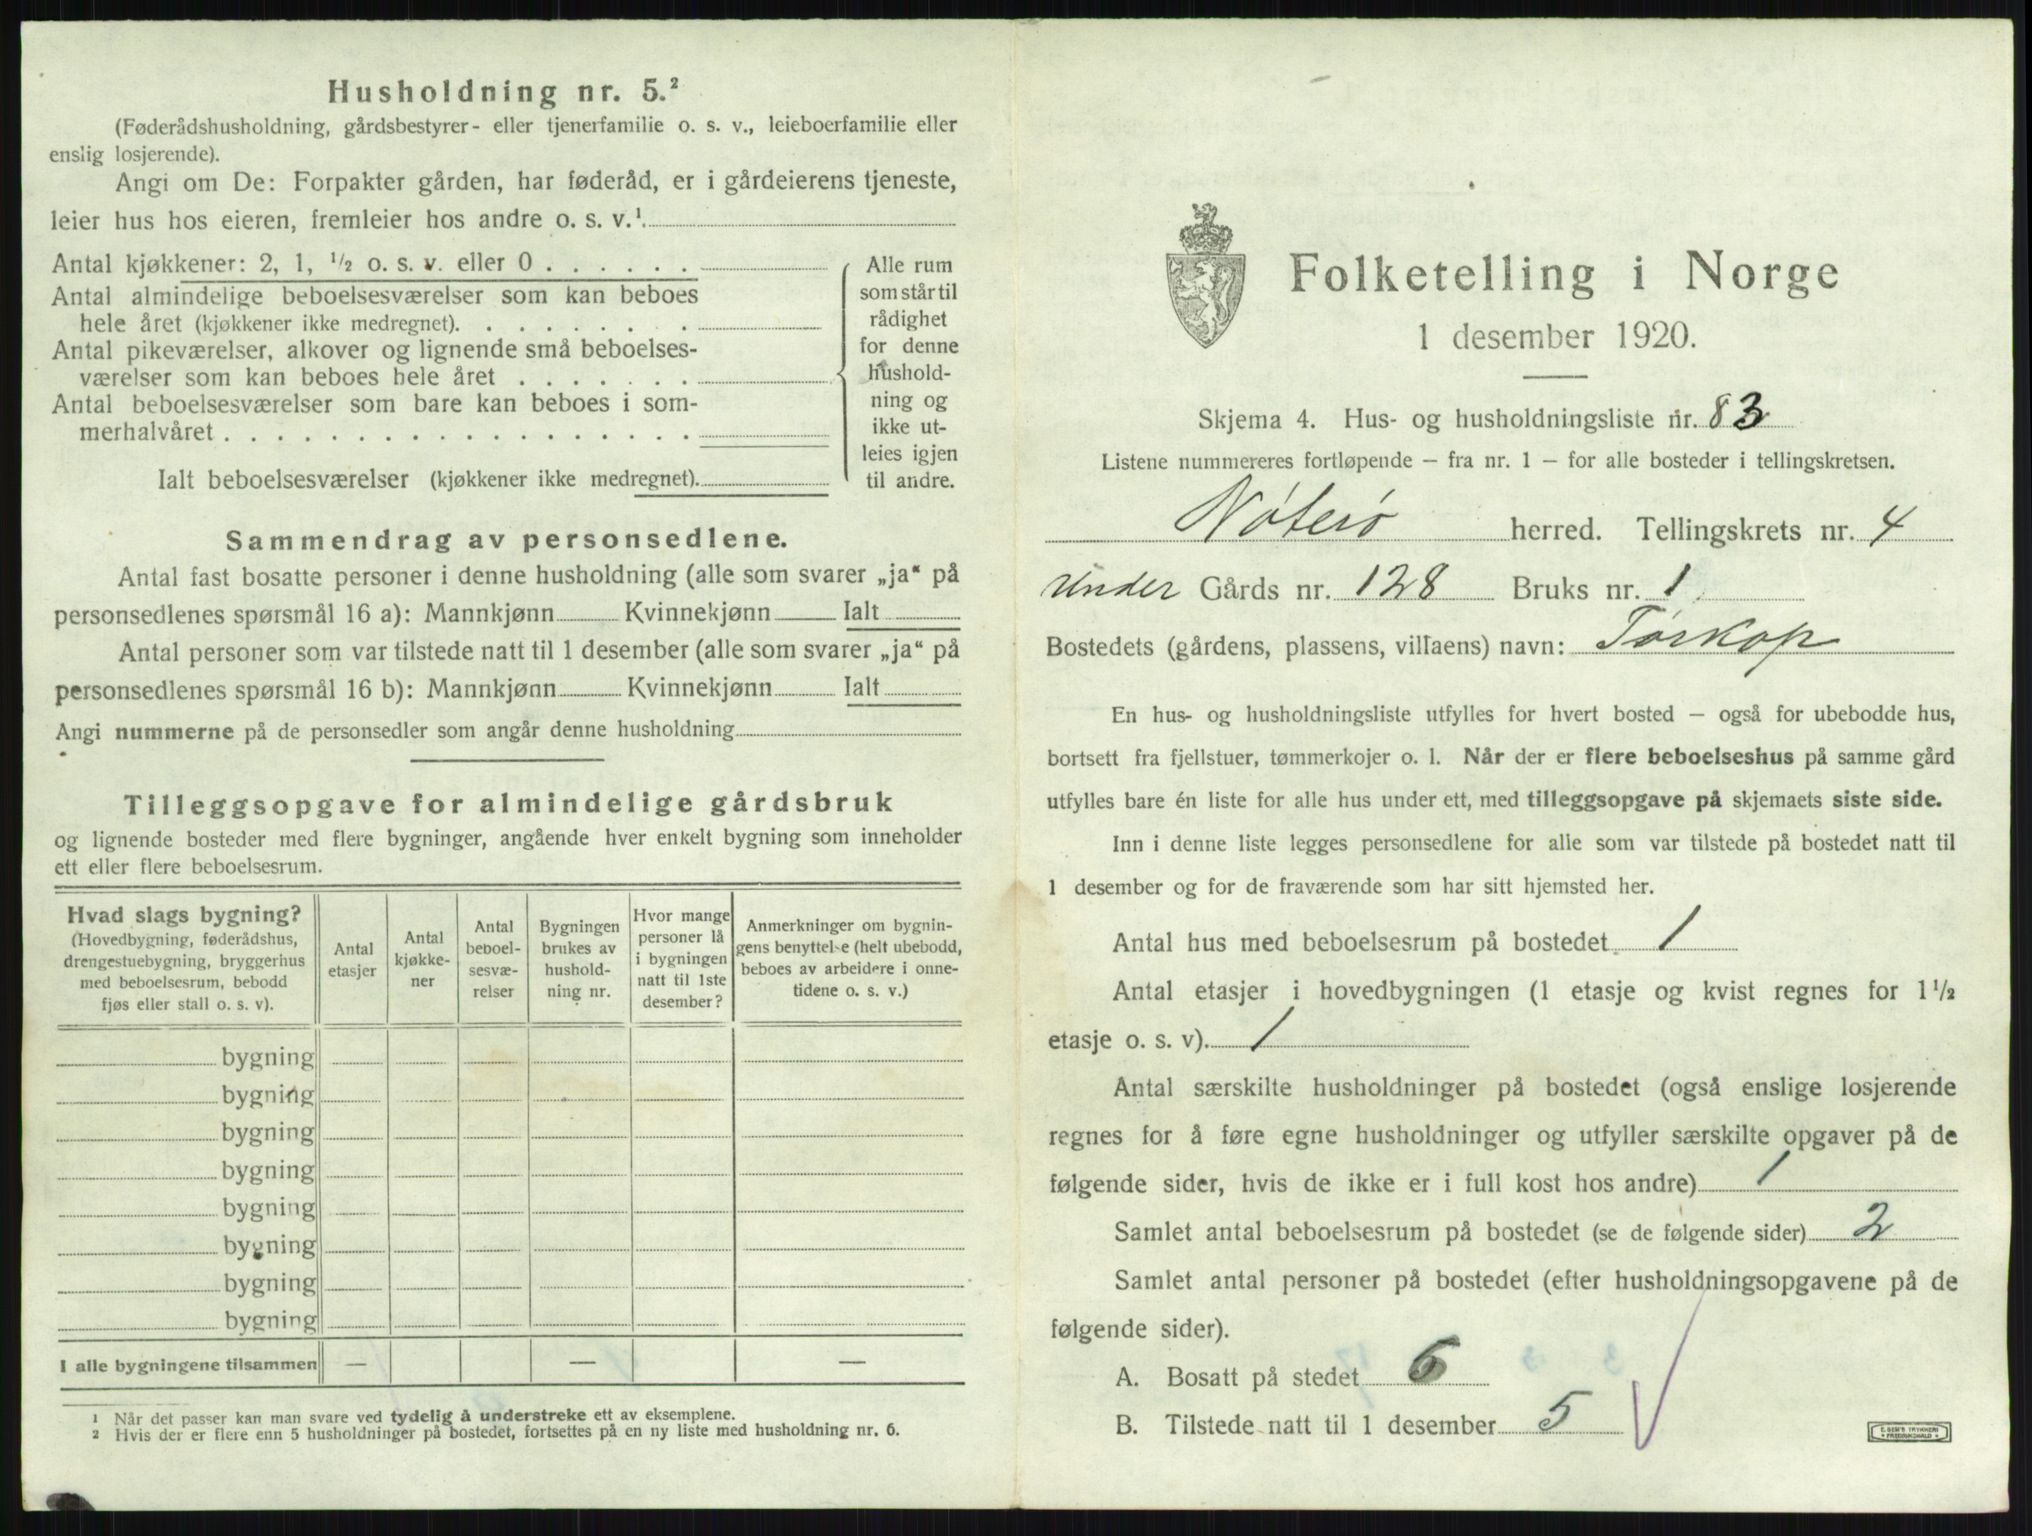 Husholdning nr. 5.²
(Føderådshusholdning, gårdsbestyrer- eller tjenerfamilie o. s. v., leieboerfamilie eller
enslig losjerende).
Angi om De: Forpakter gården, har føderåd, er i gårdeierens tjeneste,
leier hus hos eieren, fremleier hos andre o. s. v.¹
Antal kjøkkener: 2, 1, ½ o. s. v. eller 0
Antal almindelige beboelsesværelser som kan beboes
hele året (kjøkkener ikke medregnet).
Antal pikeværelser, alkover og lignende små beboelses-
værelser som kan beboes hele året
Antal beboelsesværelser som bare kan beboes i som-
merhalvåret
Ialt beboelsesværelser (kjøkkener ikke medregnet).
Alle rum
som står til
rådighet
for denne
hushold-
ning og
ikke ut-
leies igjen
til andre.
Sammendrag av personsedlene.
Antal fast bosatte personer i denne husholdning (alle som svarer „ja“ på
personsedlenes spørsmål 16 a): Mannkjønn Kvinnekjønn Ialt
Antal personer som var tilstede natt til 1 desember (alle som svarer „ja“ på
personsedlenes spørsmål 16 b): Mannkjønn Kvinnekjønn Ialt
Angi nummerne på de personsedler som angår denne husholdning
Tilleggsopgave for almindelige gårdsbruk
og lignende bosteder med flere bygninger, angående hver enkelt bygning som inneholder
ett eller flere beboelsesrum.
Hvad slags bygning?
(Hovedbygning, føderådshus,
drengestuebygning, bryggerhus
med beboelsesrum, bebodd
fjøs eller stall o. s. v).
Antal
etasjer
Antal
kjøkke-
ner
Antal
beboel-
sesvæ-
relser
Bygningen
brukes av
hushold-
ning nr.
Hvor mange
personer lå
i bygningen
natt til 1ste
desember?
Anmerkninger om bygnin-
gens benyttelse (helt ubebodd,
beboes av arbeidere i onne-
tidene o. s. v.)
bygning
bygning
bygning
bygning
bygning
bygning
bygning
bygning
I alle bygningene tilsammen — — —
¹ Når det passer kan man svare ved tydelig å understreke ett av eksemplene.
² Hvis der er flere enn 5 husholdninger på bostedet, fortsettes på en ny liste med husholdning nr. 6.
Folketelling i Norge
1 desember 1920.
Skjema 4. Hus- og husholdningsliste nr. 83
Listene nummereres fortløpende – fra nr. 1 – for alle bosteder i tellingskretsen.
Nøterø herred. Tellingskrets nr. 4
Under Gårds nr. 128 Bruks nr. 1
Bostedets (gårdens, plassens, villaens) navn: Torkop
En hus- og husholdningsliste utfylles for hvert bosted – også for ubebodde hus,
bortsett fra fjellstuer, tømmerkojer o. l. Når der er flere beboelseshus på samme gård
utfylles bare én liste for alle hus under ett, med tilleggsopgave på skjemaets siste side.
Inn i denne liste legges personsedlene for alle som var tilstede på bostedet natt til
1 desember og for de fraværende som har sitt hjemsted her.
Antal hus med beboelsesrum på bostedet 1
Antal etasjer i hovedbygningen (1 etasje og kvist regnes for 1½
etasje o. s. v). 1
Antal særskilte husholdninger på bostedet (også enslige losjerende
regnes for å føre egne husholdninger og utfyller særskilte opgaver på de
følgende sider, hvis de ikke er i full kost hos andre) 1
Samlet antal beboelsesrum på bostedet (se de følgende sider) 2
Samlet antal personer på bostedet (efter husholdningsopgavene på de
følgende sider).
A. Bosatt på stedet 6
B. Tilstede natt til 1 desember 5
E. SEM'S TRYKKERI
FREDRIKSHALD